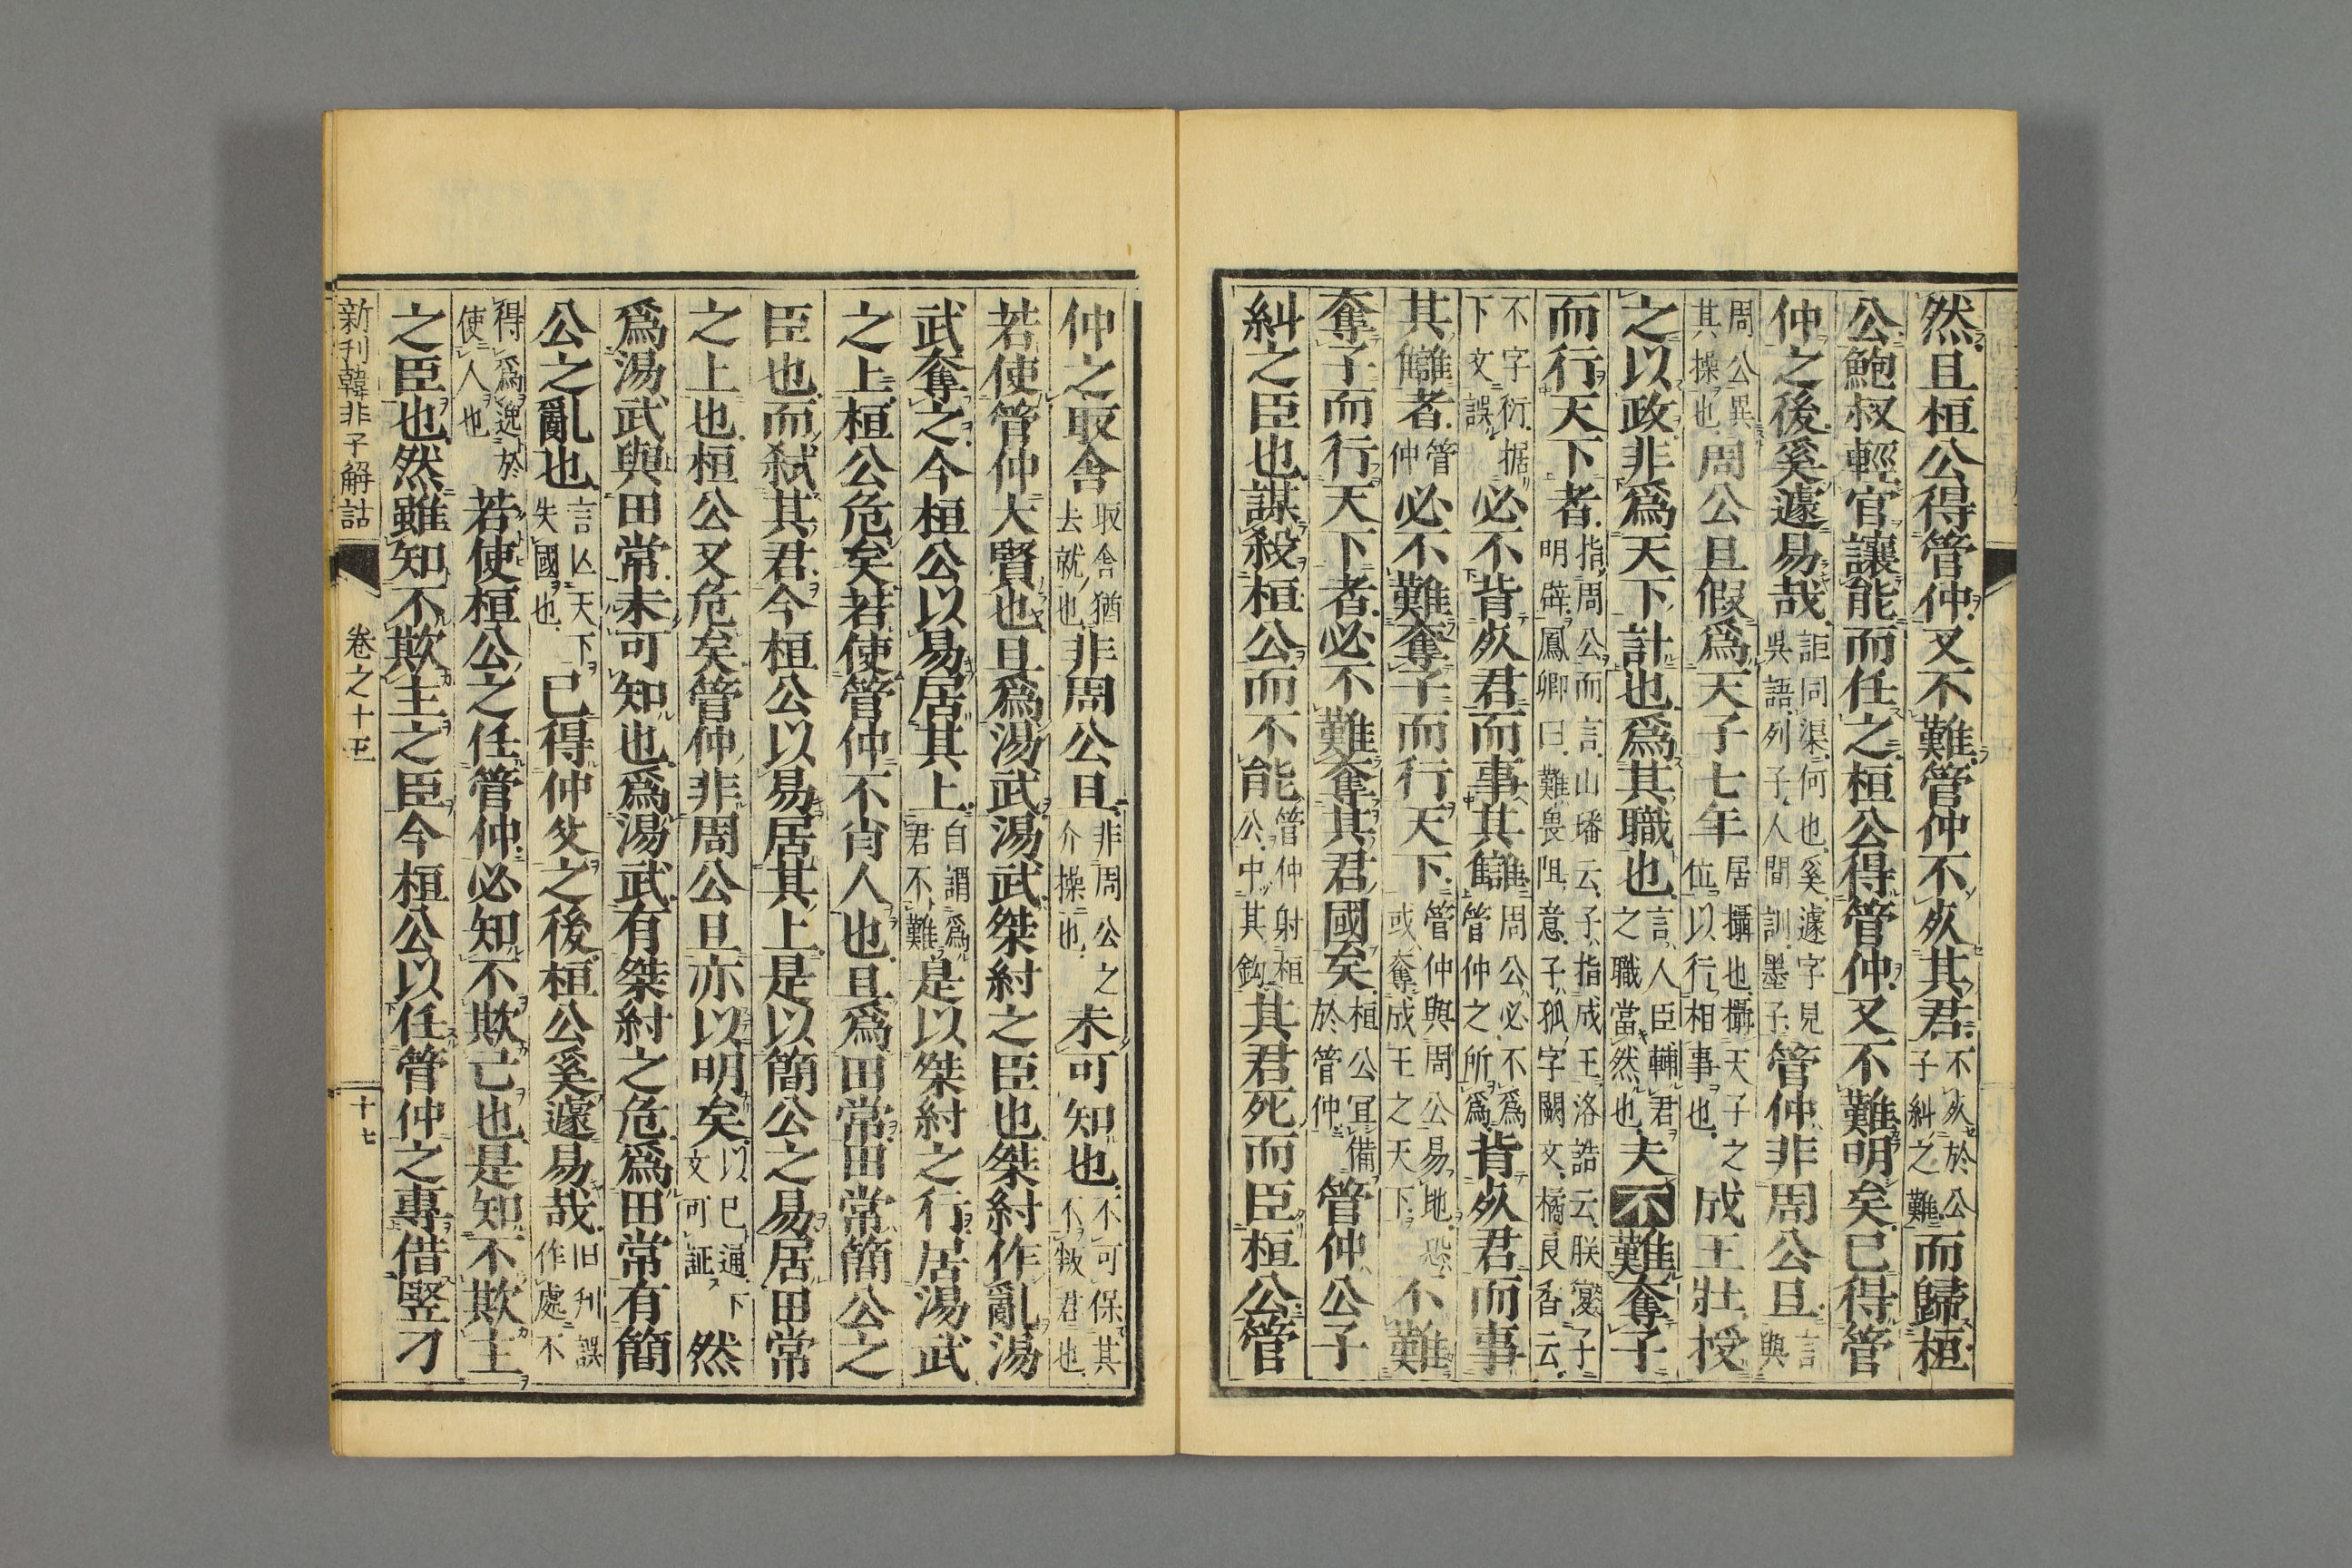 然且桓公得管仲又不難管仲不死其君不死於公子糾之難而歸桓
公鮑叔輕官讓能而任之桓公得管仲又不難明矣已得管
仲之後奚遽易哉詎同渠何也奚遽字見吳語列子人間訓墨子管仲非周公旦言與
周公異其操也周公旦假爲天子七年居攝也攝天子之位以行相事也成王壯授
之以政非爲天下計也爲其職也言人臣輔君之職當然也夫不難奪子
而行天下者指周公而言山璠云子指成王洛誥云朕復子明辟鳳卿曰難畏阻意子孤字闕文橘良香云
不字衍据下文誤必不背死君而事其讎周公必不爲管仲之所爲背死君而事
其讎者管仲必不難奪子而行天下管仲與周公易地恐或奪成王之天下不難
奪子而行天下者必不難奪其君國矣桓公宜備於管仲管仲公子
糾之臣也謀殺桓公而不能管仲射桓公中其鈎其君死而臣桓公管
仲之取舍取舍猶去就也非周公旦非周公之介操也未可知也不可保其不叛君也
若使管仲大賢也且爲湯武湯武桀紂之臣也桀紂作亂湯
武奪之今桓公以易居其上自謂爲君不難是以桀紂之行居湯武
之上桓公危矣若使管仲不肖人也且爲田常田常簡公之
臣也而弑其君今桓公以易居其上是以簡公之易居田常
之上也桓公又危矣管仲非周公旦亦以明矣以已通下文可証然
爲湯武與田常未可知也爲湯武有桀紂之危爲田常有簡
公之亂也言亾天下失國也已得仲父之後桓公奚遽易哉旧刋誤作處不
得爲逸於使人也若使桓公之任管仲必知不欺己也是知不欺主
之臣也然雖知不欺主之臣今桓公以任管仲之專借竪刁
新刊韓非子解詁 卷之十五 十七